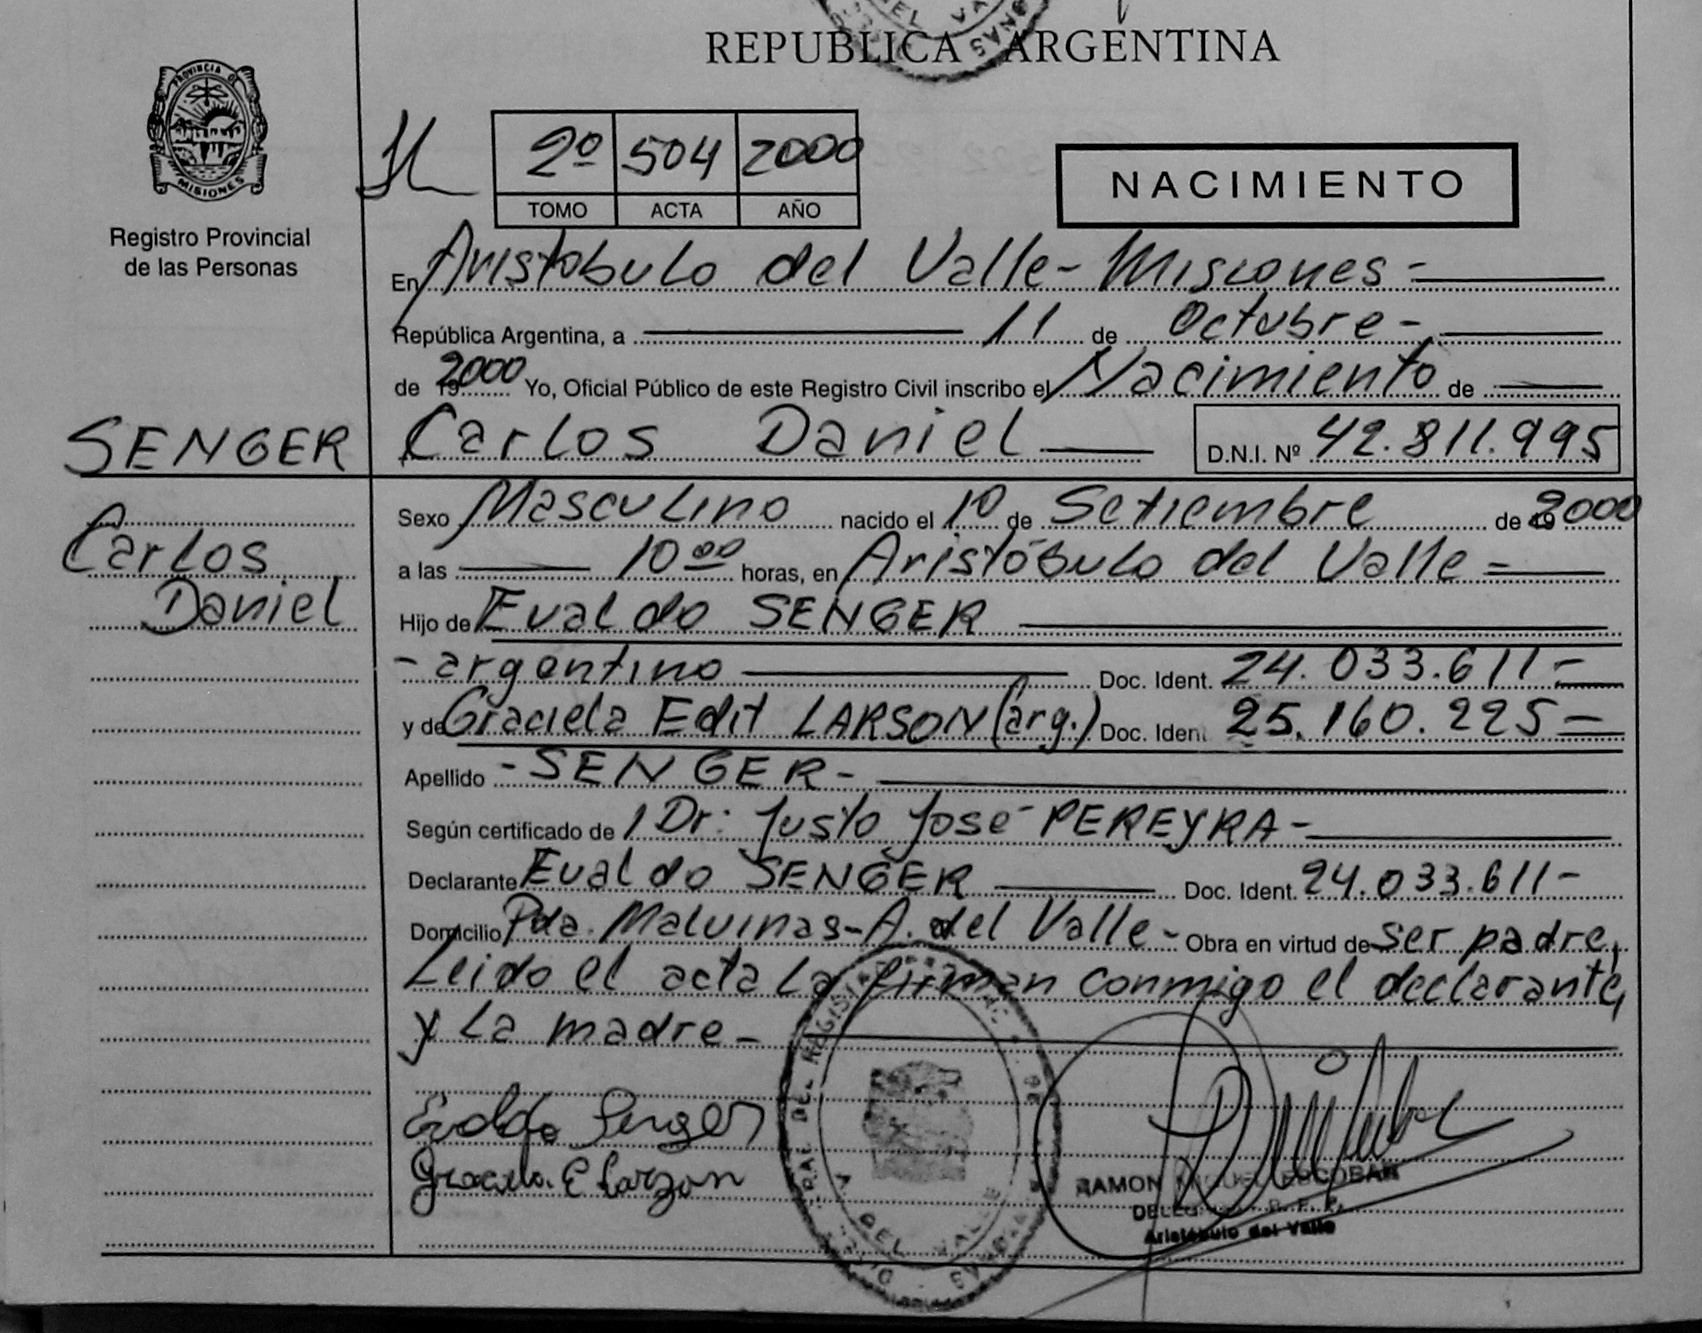 REPUBLICA ARGENTINA
PROVINCIA DE
MISIONES
Registro Provincial
de las Personas
2º 504 2000
TOMO ACTA AÑO
NACIMIENTO
En Aristobulo del Valle - Misiones -
República Argentina, a 11 de Octubre -
de 2000 Yo, Oficial Público de este Registro Civil inscribo el Nacimiento de
SENGER
Carlos Daniel
Carlos Daniel D.N.I. Nº 42.811.995
Sexo Masculino nacido el 10 de Setiembre de 2000
a las 10ºº horas, en Aristóbulo del Valle -
Hijo de Evaldo SENGER
- argentino Doc. Ident. 24.033.611 -
y de Graciela Edit LARSON (arg.) Doc. Ident. 25.160.225 -
Apellido - SENGER -
Según certificado de 1 Dr: Justo José PEREYRA -
Declarante Evaldo SENGER Doc. Ident. 24.033.611 -
Domicilio Pda. Malvinas - A. del Valle - Obra en virtud de ser padre,
Leido el acta la firman conmigo el declarante,
y la madre -
Graciela E Larzon
RAMON MIGUEL ESCOBAR
Aristóbulo del Valle